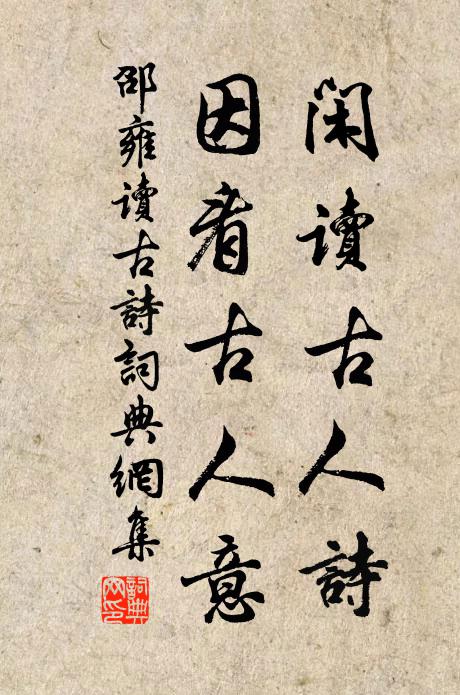 閑讀古人詩
因看古人意
邵雍讀古詩詞典網集
詞典
网印